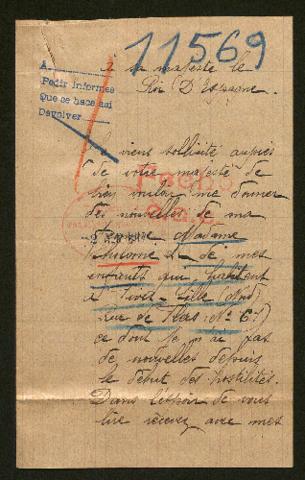 11569
A
Pedir informes
Que se hace así
Devolver
a sa majesté le
Roi D'Espagne.
Je vient sollicité auprès
de votre majesté de
bien vouloir me donner
des nouvelles de ma
femme Madame
Antoine et de mes
enfants qui habitent
à Lille Nord
Rue de N° 6
ce dont je n'ai pas
de nouvelles depuis
le début des hostilités.
Dans l'espoir de vous
lire recevez avec mes